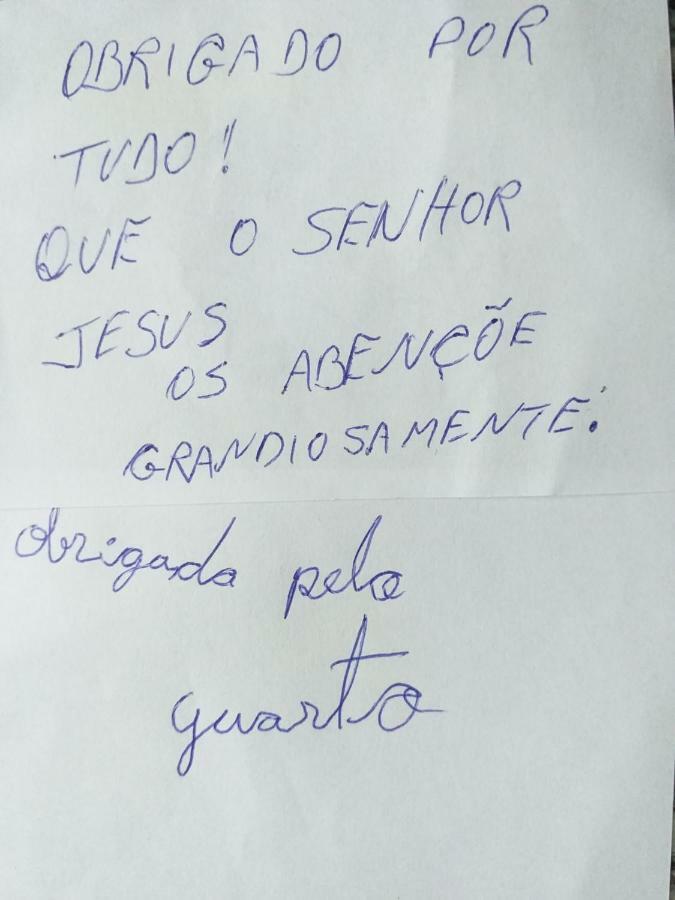 OBRIGADO POR
TUDO!
QUE O SENHOR
JESUS
OS ABENÇÕE
GRANDIOSAMENTE.
Obrigada pelo
quarto